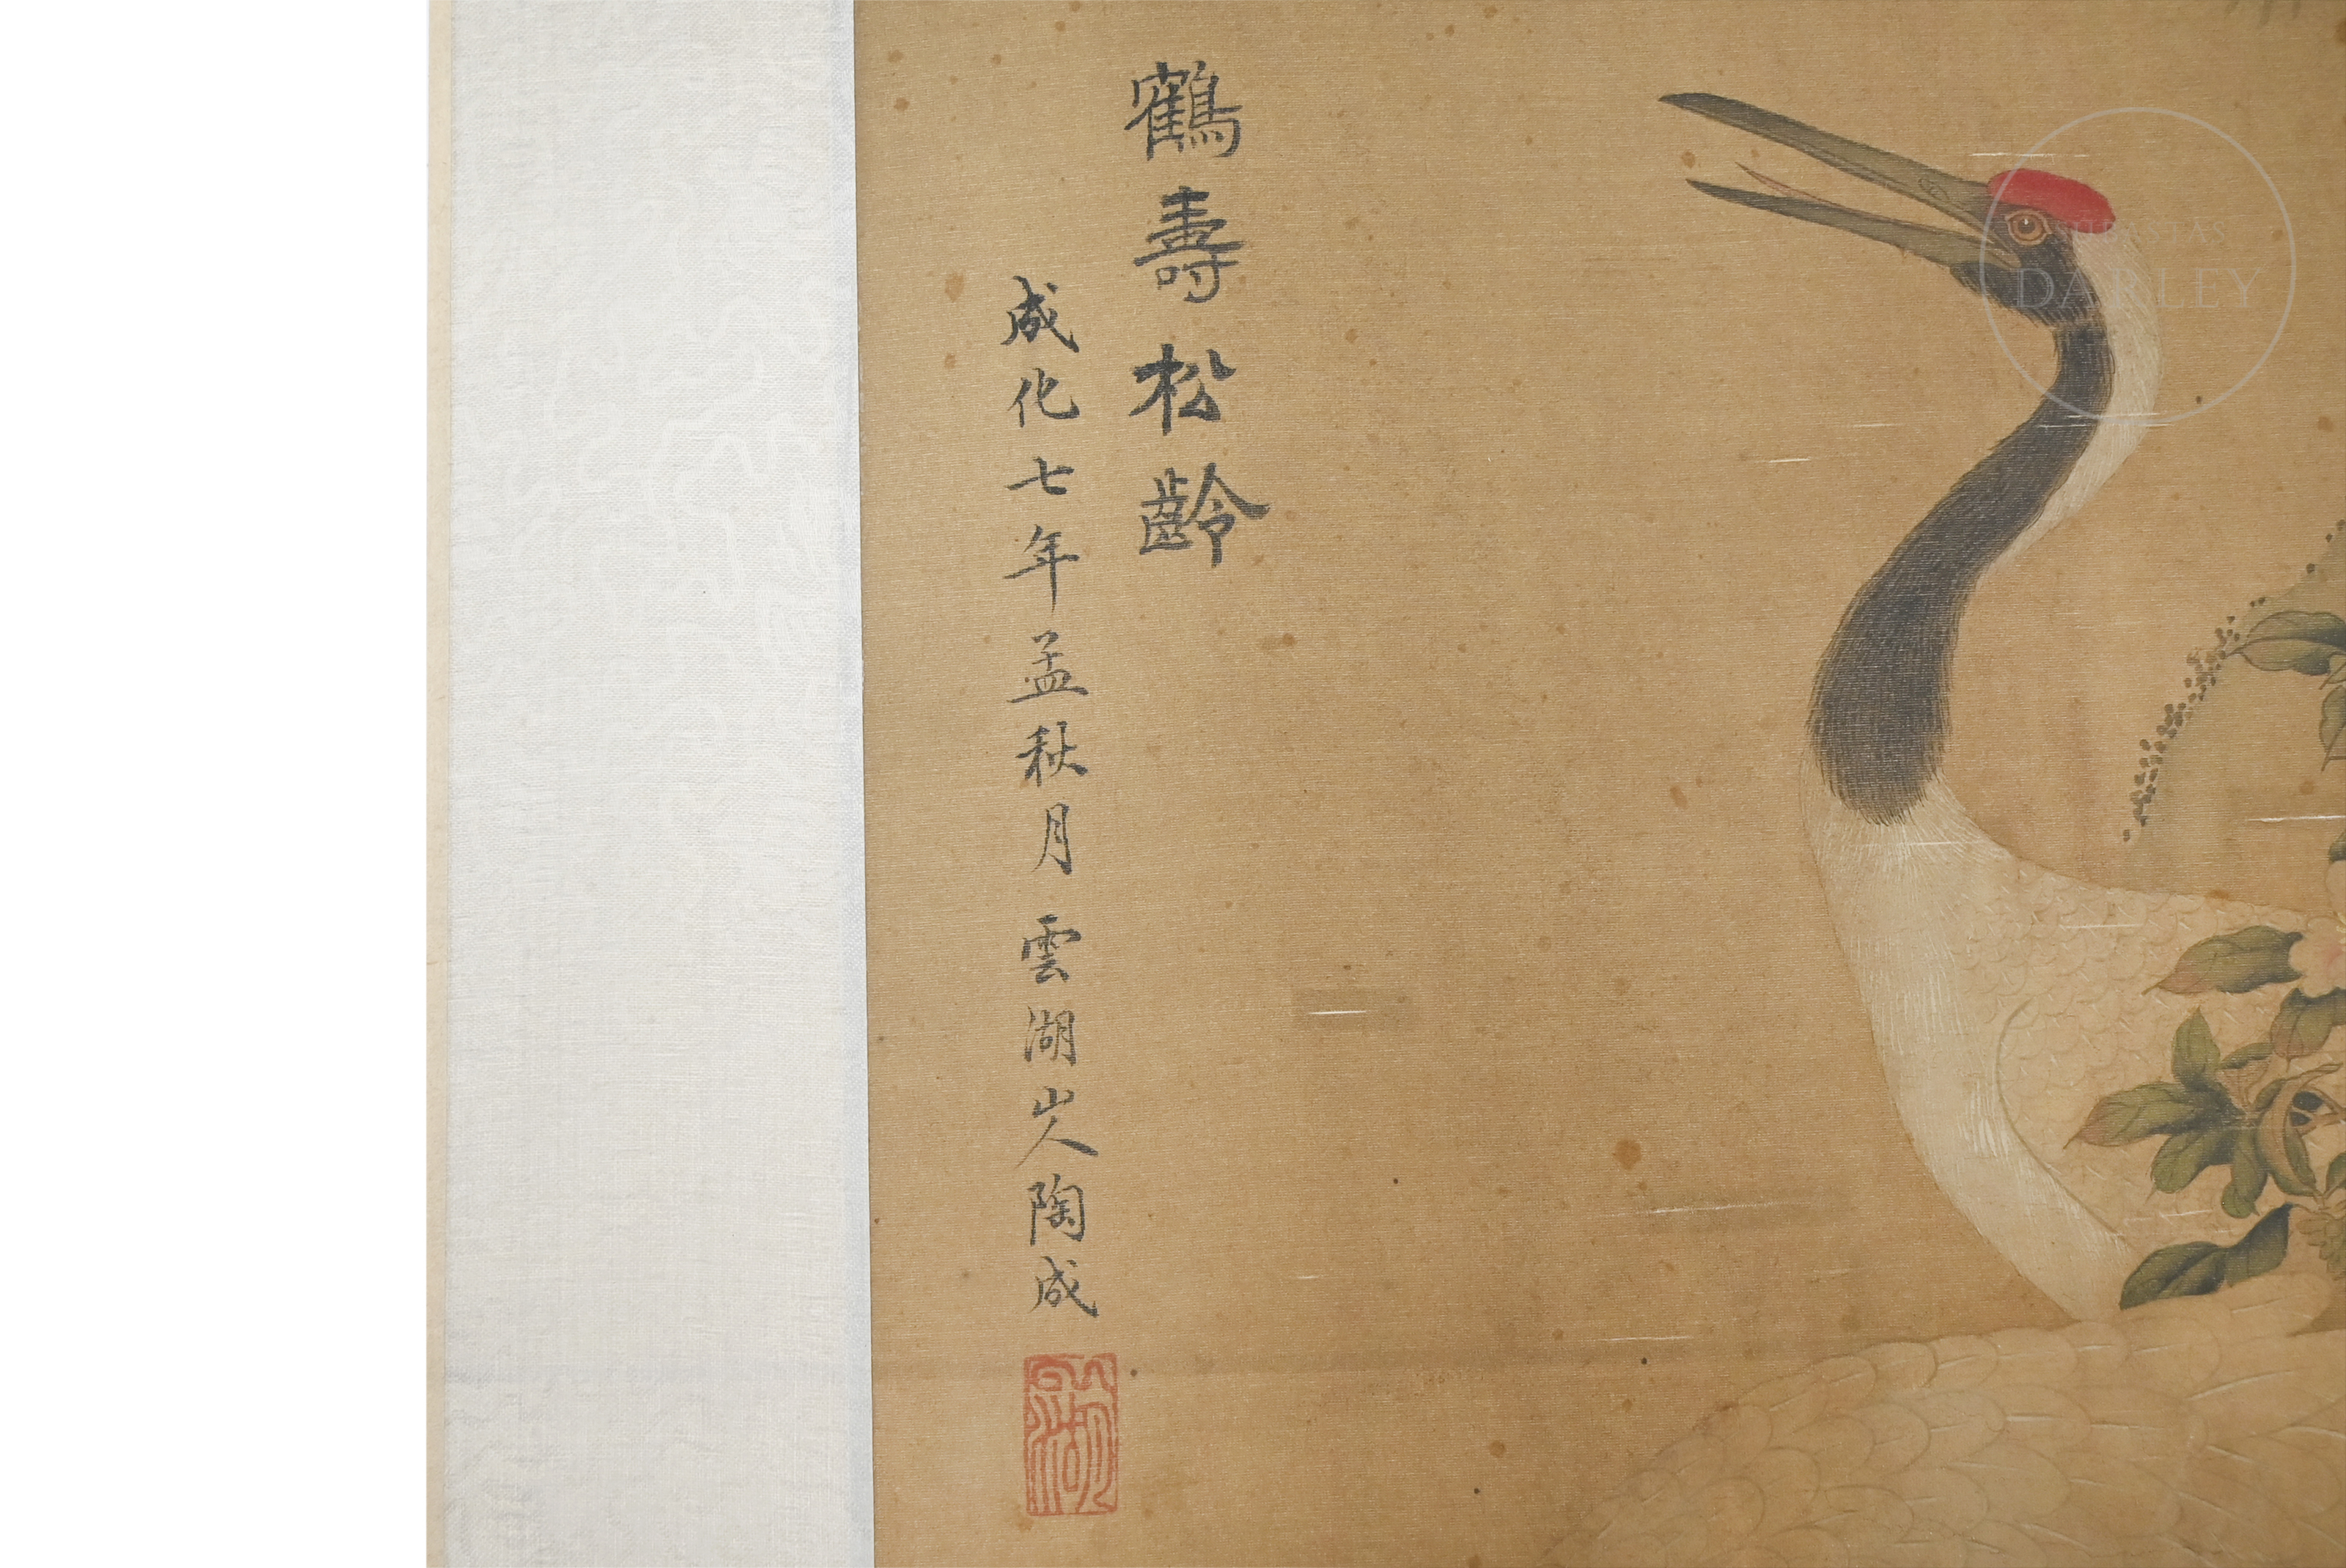 鶴壽松齡
成化七年孟秋月雲湖山人陶成
SUBASTAS
DARLEY